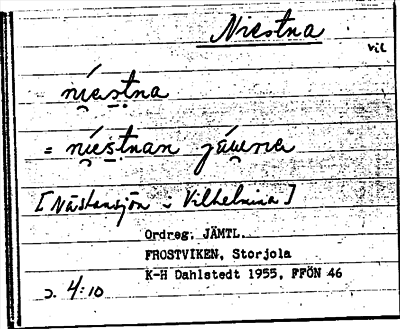 Niestna
vil
níestna
= níestnan jáuͮrıe
[Nästansjön i Vilhelmina]
Ordreg. JÄMTL.
FROSTVIKEN, Storjola
K-H Dahlstedt 1955, FFÖN 46
4:10